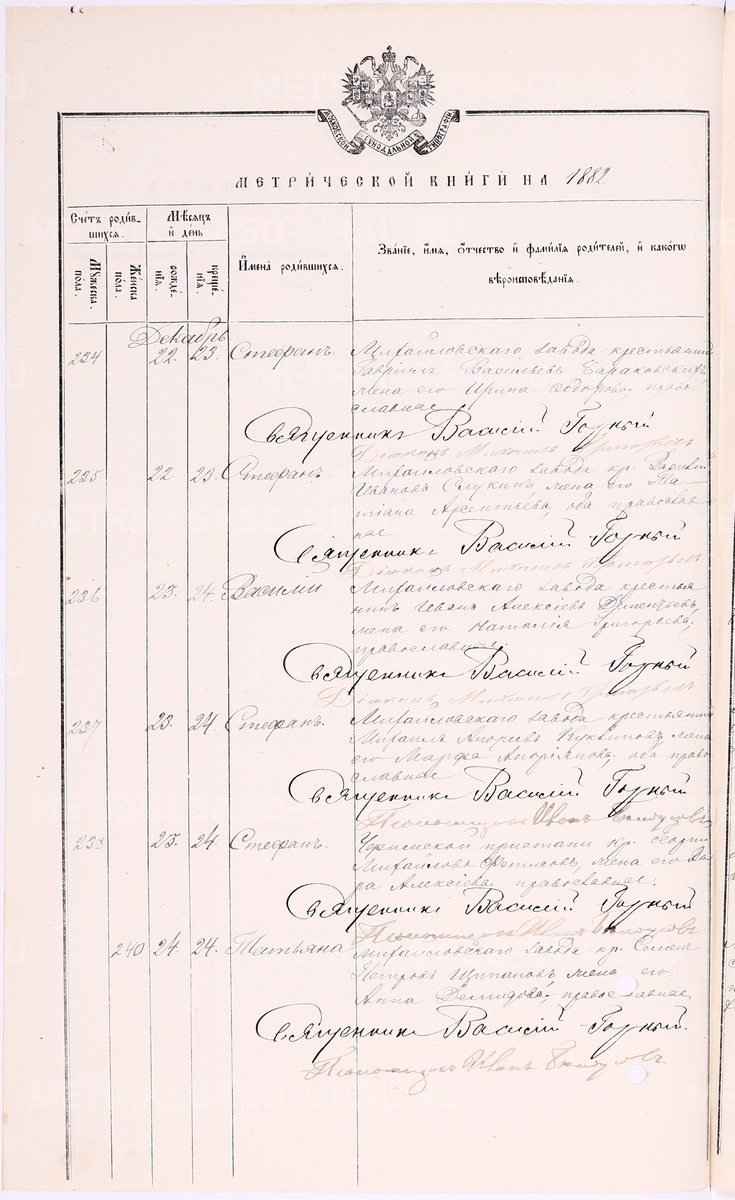 МОСКОВСКОЙ СѴНОДАЛЬНОЙ ТИПОГРАФІИ
МЕТРИ́ЧЕСКОЙ КНИ́ГИ НА 1882
Сче́тъ роди́вшихся.
Мꙋжеска пола.
Же́нска пола.
Мѣсяцъ и҆ де́нь
рожде́нїѧ.
креще́нїѧ.
И҆мена̀ роди́вшихсѧ.
Зва́нїе, и҆́мѧ, ѻ҆́тчество и҆ фами́лїѧ роди́телей, и҆ како́гѡ
вѣроисповѣ́данїѧ.
Декабрь
234 22. 23. Стефанъ. Михайловскаго завода крестьянинъ
Гавриилъ Васильевъ Бараковскихъ
жена его Ирина Ѳедорова, право
славные
Священникъ Василій Горный
Діаконъ Михаилъ Григорьевъ
235 22 23. Стефанъ. Михайловскаго завода кр. Василій
Ивановъ Слукинъ жена его Та-
тіана Арсентьева, оба православ
ные
Священникъ Василій Горный
Діаконъ Михаилъ Григорьевъ
236 23. 24. Василій Михайловскаго завода крестья
нинъ Иванъ Алексіевъ Дементьевъ,
жена его Наталія Григорьева,
православные.
Священникъ Василій Горный
Діаконъ Михаилъ Григорьевъ
237 23. 24. Стефанъ. Михайловскаго завода крестьянинъ
Михаилъ Андреевъ жена
его Марфа Андріянова, оба право
славные
Священникъ Василій Горный
Псаломщикъ Иванъ
238 23. 24. Стефанъ. пристани кр. Георгій
Михайловъ Фетисовъ, жена его Да
рa Алексіева, православные.
Священникъ Василій Горный
Псаломщикъ Иванъ
240 24. 24. Татьяна Михайловскаго завода кр. Семенъ
Петровъ Щипановъ жена его
Анна Демидова, православные
Священникъ Василій Горный.
Псаломщикъ Иванъ